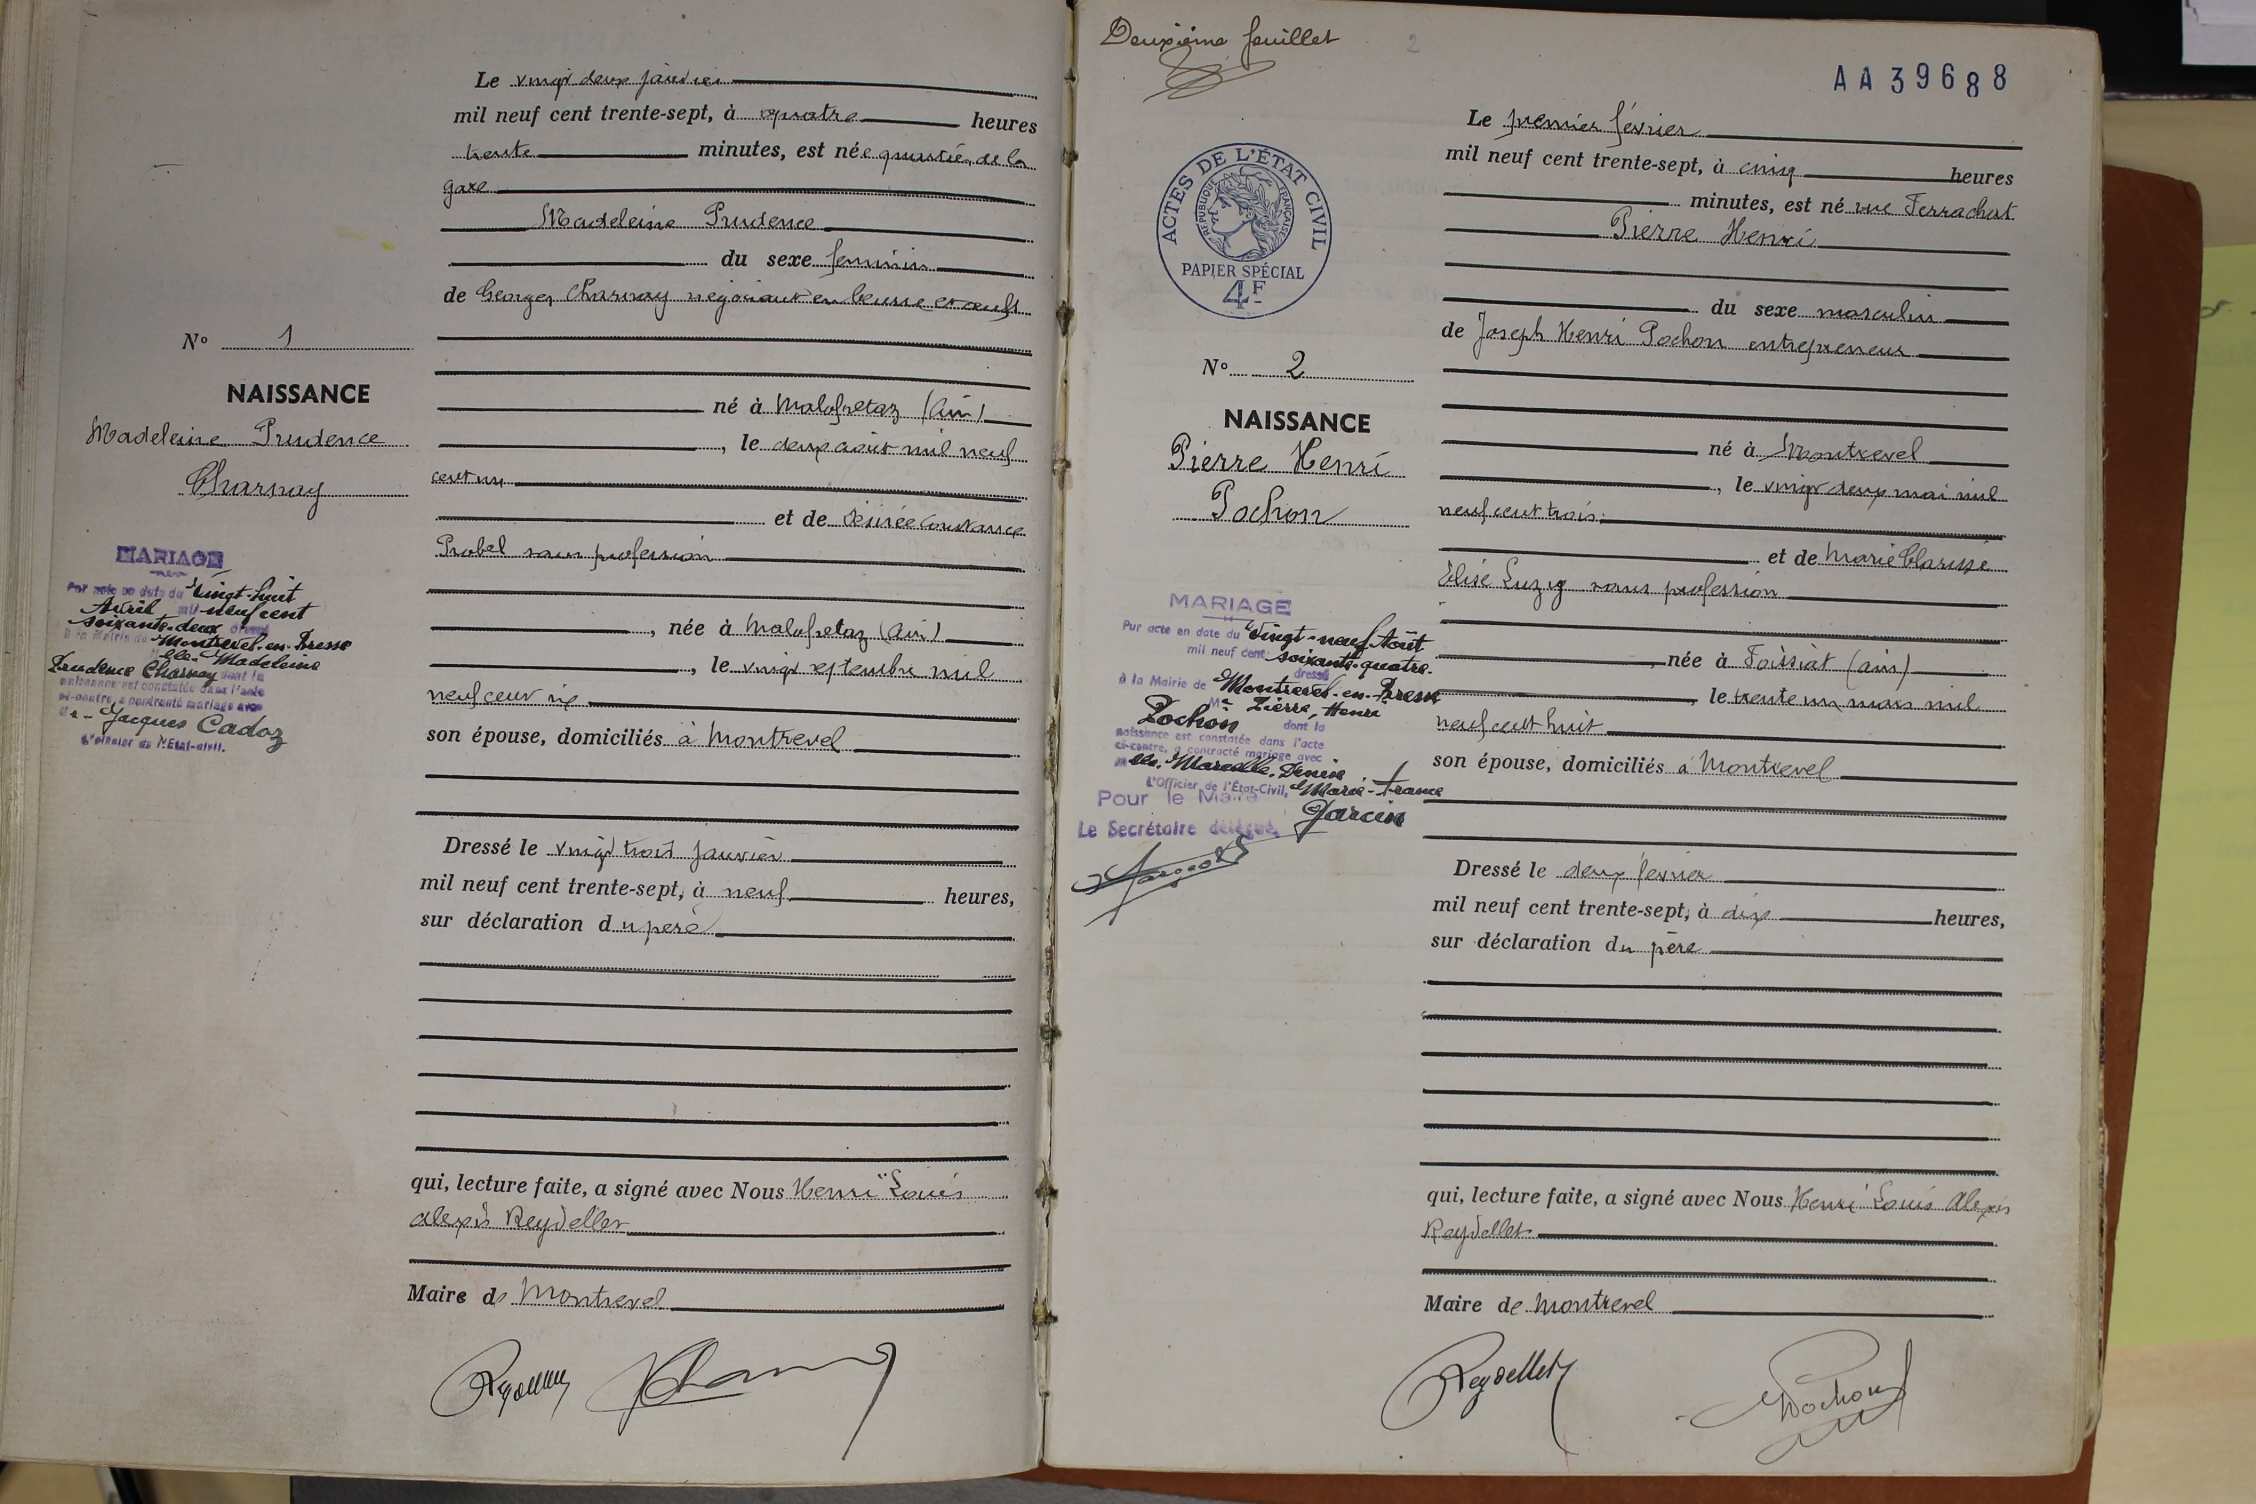 Le vingt deux janvier
mil neuf cent trente-sept, à quatre heures
trente minutes, est née quartier de la
gare
Madeleine Prudence
du sexe feminin
de Georges Charnay négociant en beurre et œufs
né à Malafretaz (Ain)
, le deux août mil neuf
cent un
et de Désirée Constance
Probel sans profession
, née à Malafretaz (Ain)
, le vingt septembre mil
neuf cent six
son épouse, domiciliés à Montrevel
Dressé le vingt trois janvier
mil neuf cent trente-sept, à neuf heures,
sur déclaration du père
qui, lecture faite, a signé avec Nous Henri Louis
Alexis Reydellet
Maire de Montrevel
N° 1
NAISSANCE
Madeleine Prudence
Charnay
MARIAGE
Par acte en date du Vingt-huit
Avril mil neuf cent
soixante-deux dressé
à la Mairie de Montrevel-en-Bresse
elle- Madeleine
Prudence Charnay dont la
naissance est constatée dans l'acte
ci-contre, a contracté mariage avec
Jacques Cadoz
L'Officier de l'Etat-civil.
Deuxième feuillet
2
AA39688
ACTES DE L'ÉTAT CIVIL
RÉPUBLIQUE FRANÇAISE
PAPIER SPÉCIAL
4F
N° 2
NAISSANCE
Pierre Henri
Pochon
MARIAGE
Par acte en date du Vingt-neuf Août
mil neuf cent soixante-quatre
dressé
à la Mairie de Montrevel-en-Bresse
Mr Pierre, Henri
Pochon dont la
naissance est constatée dans l'acte
ci-contre, a contracté mariage avec
Melle Marcelle, Denise
L'Officier de l'État-Civil, Marie-France
Pour le Maire Garcin
Le Secrétaire délégué,
Le premier février
mil neuf cent trente-sept, à cinq heures
minutes, est né rue Ferrachat
Pierre Henri
du sexe masculin
de Joseph Henri Pochon entrepreneur
né à Montrevel
, le vingt deux mai mil
neuf cent trois
et de Marie Clarisse
Elise Luzy sans profession
, née à Foissiat (Ain)
, le trente un mars mil
neuf cent huit
son épouse, domiciliés à Montrevel
Dressé le deux février
mil neuf cent trente-sept, à dix heures,
sur déclaration du père
qui, lecture faite, a signé avec Nous Henri Louis Alexis
Reydellet
Maire de Montrevel
Reydellet
Pochon